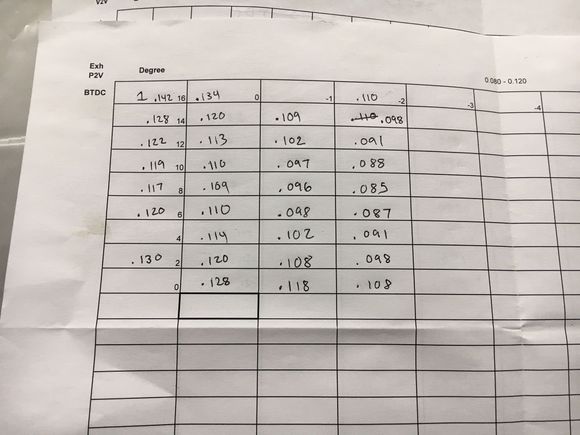 V2V
Exh
P2V
Degree
0.080 - 0.120
BTDC 1 .142 16 .134 0 -1 .110 -2 -3 -4
.128 14 .120 .109 .110 .098
.122 12 .113 .102 .091
.119 10 .110 .097 .088
.117 8 .109 .096 .085
.120 6 .110 .098 .087
4 .114 .102 .091
.130 2 .120 .108 .098
0 .128 .118 .108